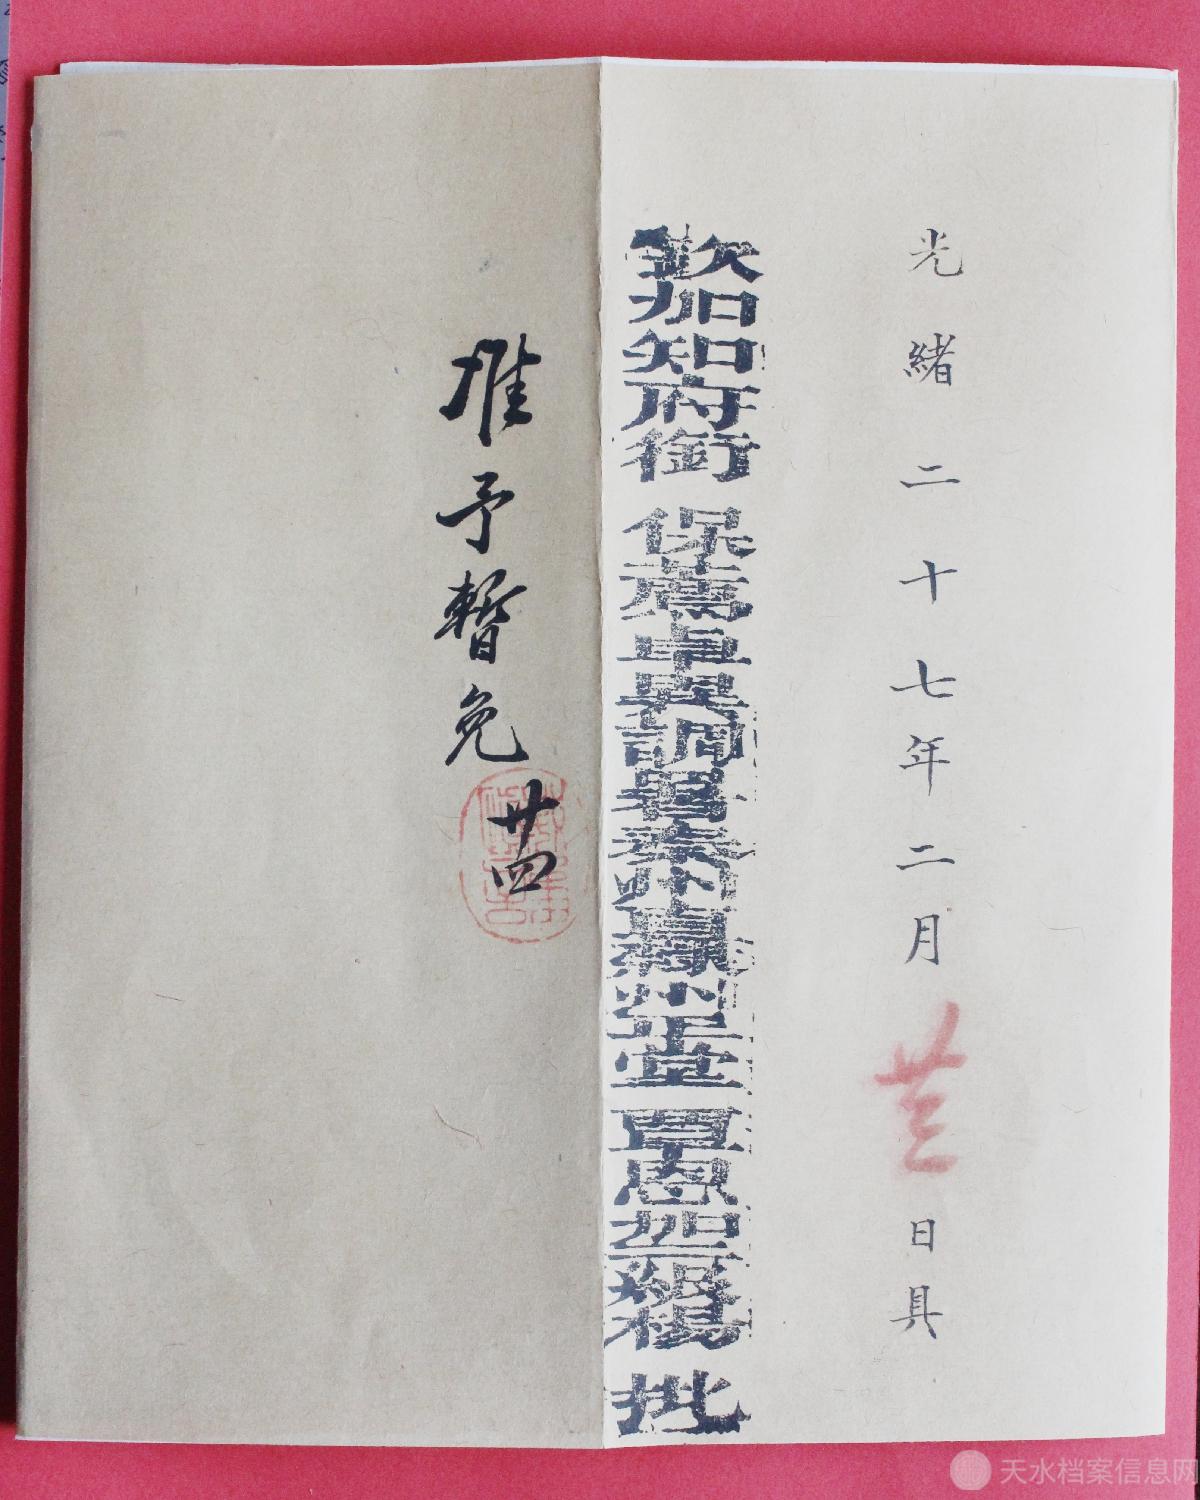 光緒二十七年二月廿三日具
欽加知府銜 保薦卓異調署秦州直隸州正堂 覃恩加一級楊 批
准予暫免 廿四
天水档案信息网